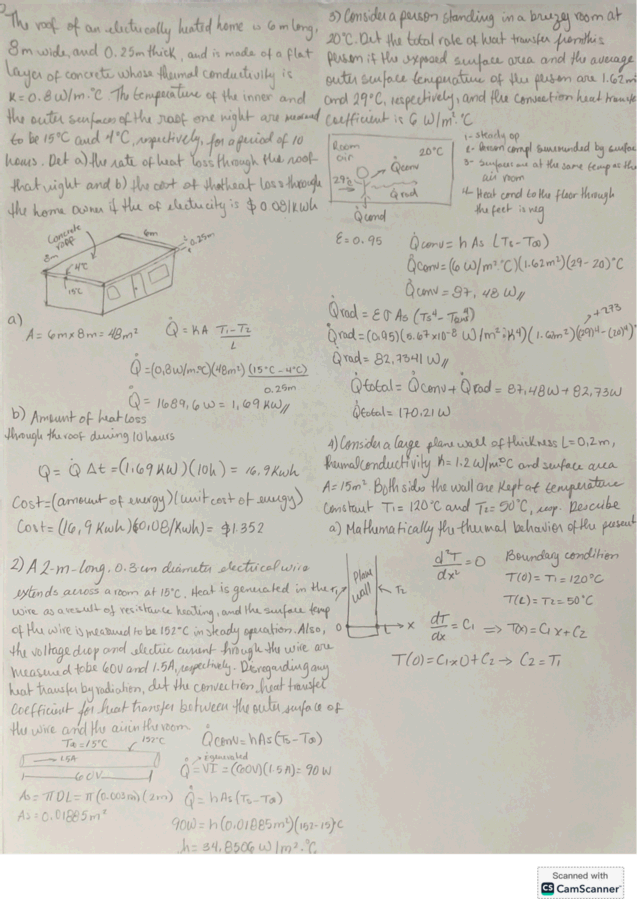 The roof of an electrically heated home is 6m long,
8m wide, and 0.25m thick, and is made of a flat
layer of concrete whose thermal conductivity is
K=0.8 W/m.°C. The temperature of the inner and
the outer surfaces of the roof one night are
to be 15°C and 4°C, respectively, for a period of 10
hours. Det a) the rate of heat loss through the roof
that night and b) the cost of that heat loss through
the home owner if the of electricity is $0.08/kWh
Concrete
roof
6m
0.25m
8m
4°C
15°C
a)
A = 6m x 8m = 48m² Q̇ = KA T₁-T₂/L
Q̇ = (0,8W/m.°C)(48m²) (15°C - 4°C)/0.25m
Q̇ = 1689,6 W = 1,69 KW//
b) Amount of heat loss
through the roof during 10 hours
Q = Q̇ Δt = (1.69 KW)(10h) = 16.9 Kwh
Cost = (amount of energy)(unit cost of energy)
Cost = (16,9 Kwh)($0,08/Kwh) = $1.352
2) A 2-m-long. 0.3 cm diameter electrical wire
extends across a room at 15°C. Heat is generated in the
wire as a result of resistance heating, and the surface temp
of the wire is measured to be 152°C in steady operation. Also,
the voltage drop and electric current through the wire are
measured to be 60V and 1.5A, respectively. Disregarding any
heat transfer by radiation, det the convection heat transfer
coefficient for heat transfer between the outer surface of
the wire and the air in the room
T∞ = 15°C 152°C
1.5A
60V
As = πDL = π(0.003m)(2m)
As = 0.01885m²
Q̇conv = hAs(Ts - T∞)
Ėgenerated
Q̇ = VI = (60V)(1.5A) = 90 W
Q̇ = hAs(Ts - T∞)
90W = h(0,01885m²)(152-15)°C
h = 34,8506 W/m².°C
3) Consider a person standing in a breezy room at
20°C. Det the total rate of heat transfer from this
person if the exposed surface area and the average
outer surface temperature of the person are 1.62m²
and 29°C, respectively, and the convection heat transfer
coefficient is 6 W/m².°C
Room
air
20°C
Q̇conv
29°C
Q̇rad
Q̇cond
1- steady op
2- Person compl surrounded by surfac
3- Surfaces are at the same temp as the
air room
4- Heat cond to the floor through
the feet is neg
ε = 0.95 Q̇conv = h As (Ts - T∞)
Q̇conv = (6 W/m².°C)(1.62m²)(29-20)°C
Q̇conv = 87,48 W//
Q̇rad = εσ As (Ts⁴ - Tsurr⁴)
+273
Q̇rad = (0,95)(5.67x10⁻⁸ W/m².K⁴)(1.62m²)((29)⁴-(20)⁴)
Q̇rad = 82,7341 W//
Q̇total = Q̇conv + Q̇rad = 87,48W + 82,73W
Q̇total = 170,21 W
4) Consider a large plane wall of thickness L=0,2m,
thermal conductivity K=1.2 W/m°C and surface area
A=15m² Both sides the wall are kept at temperature
constant T₁=120°C and T₂=50°C, resp. Describe
a) Mathematically the thermal behavior of the present
T₁
Plane
wall
T₂
0
L
x
d²T/dx² = 0
Boundary condition
T(0) = T₁ = 120°C
T(L) = T₂ = 50°C
dT/dx = C₁ ⇒ T(x) = C₁x + C₂
T(0) = C₁x0 + C₂ → C₂ = T₁
Scanned with
CS CamScanner